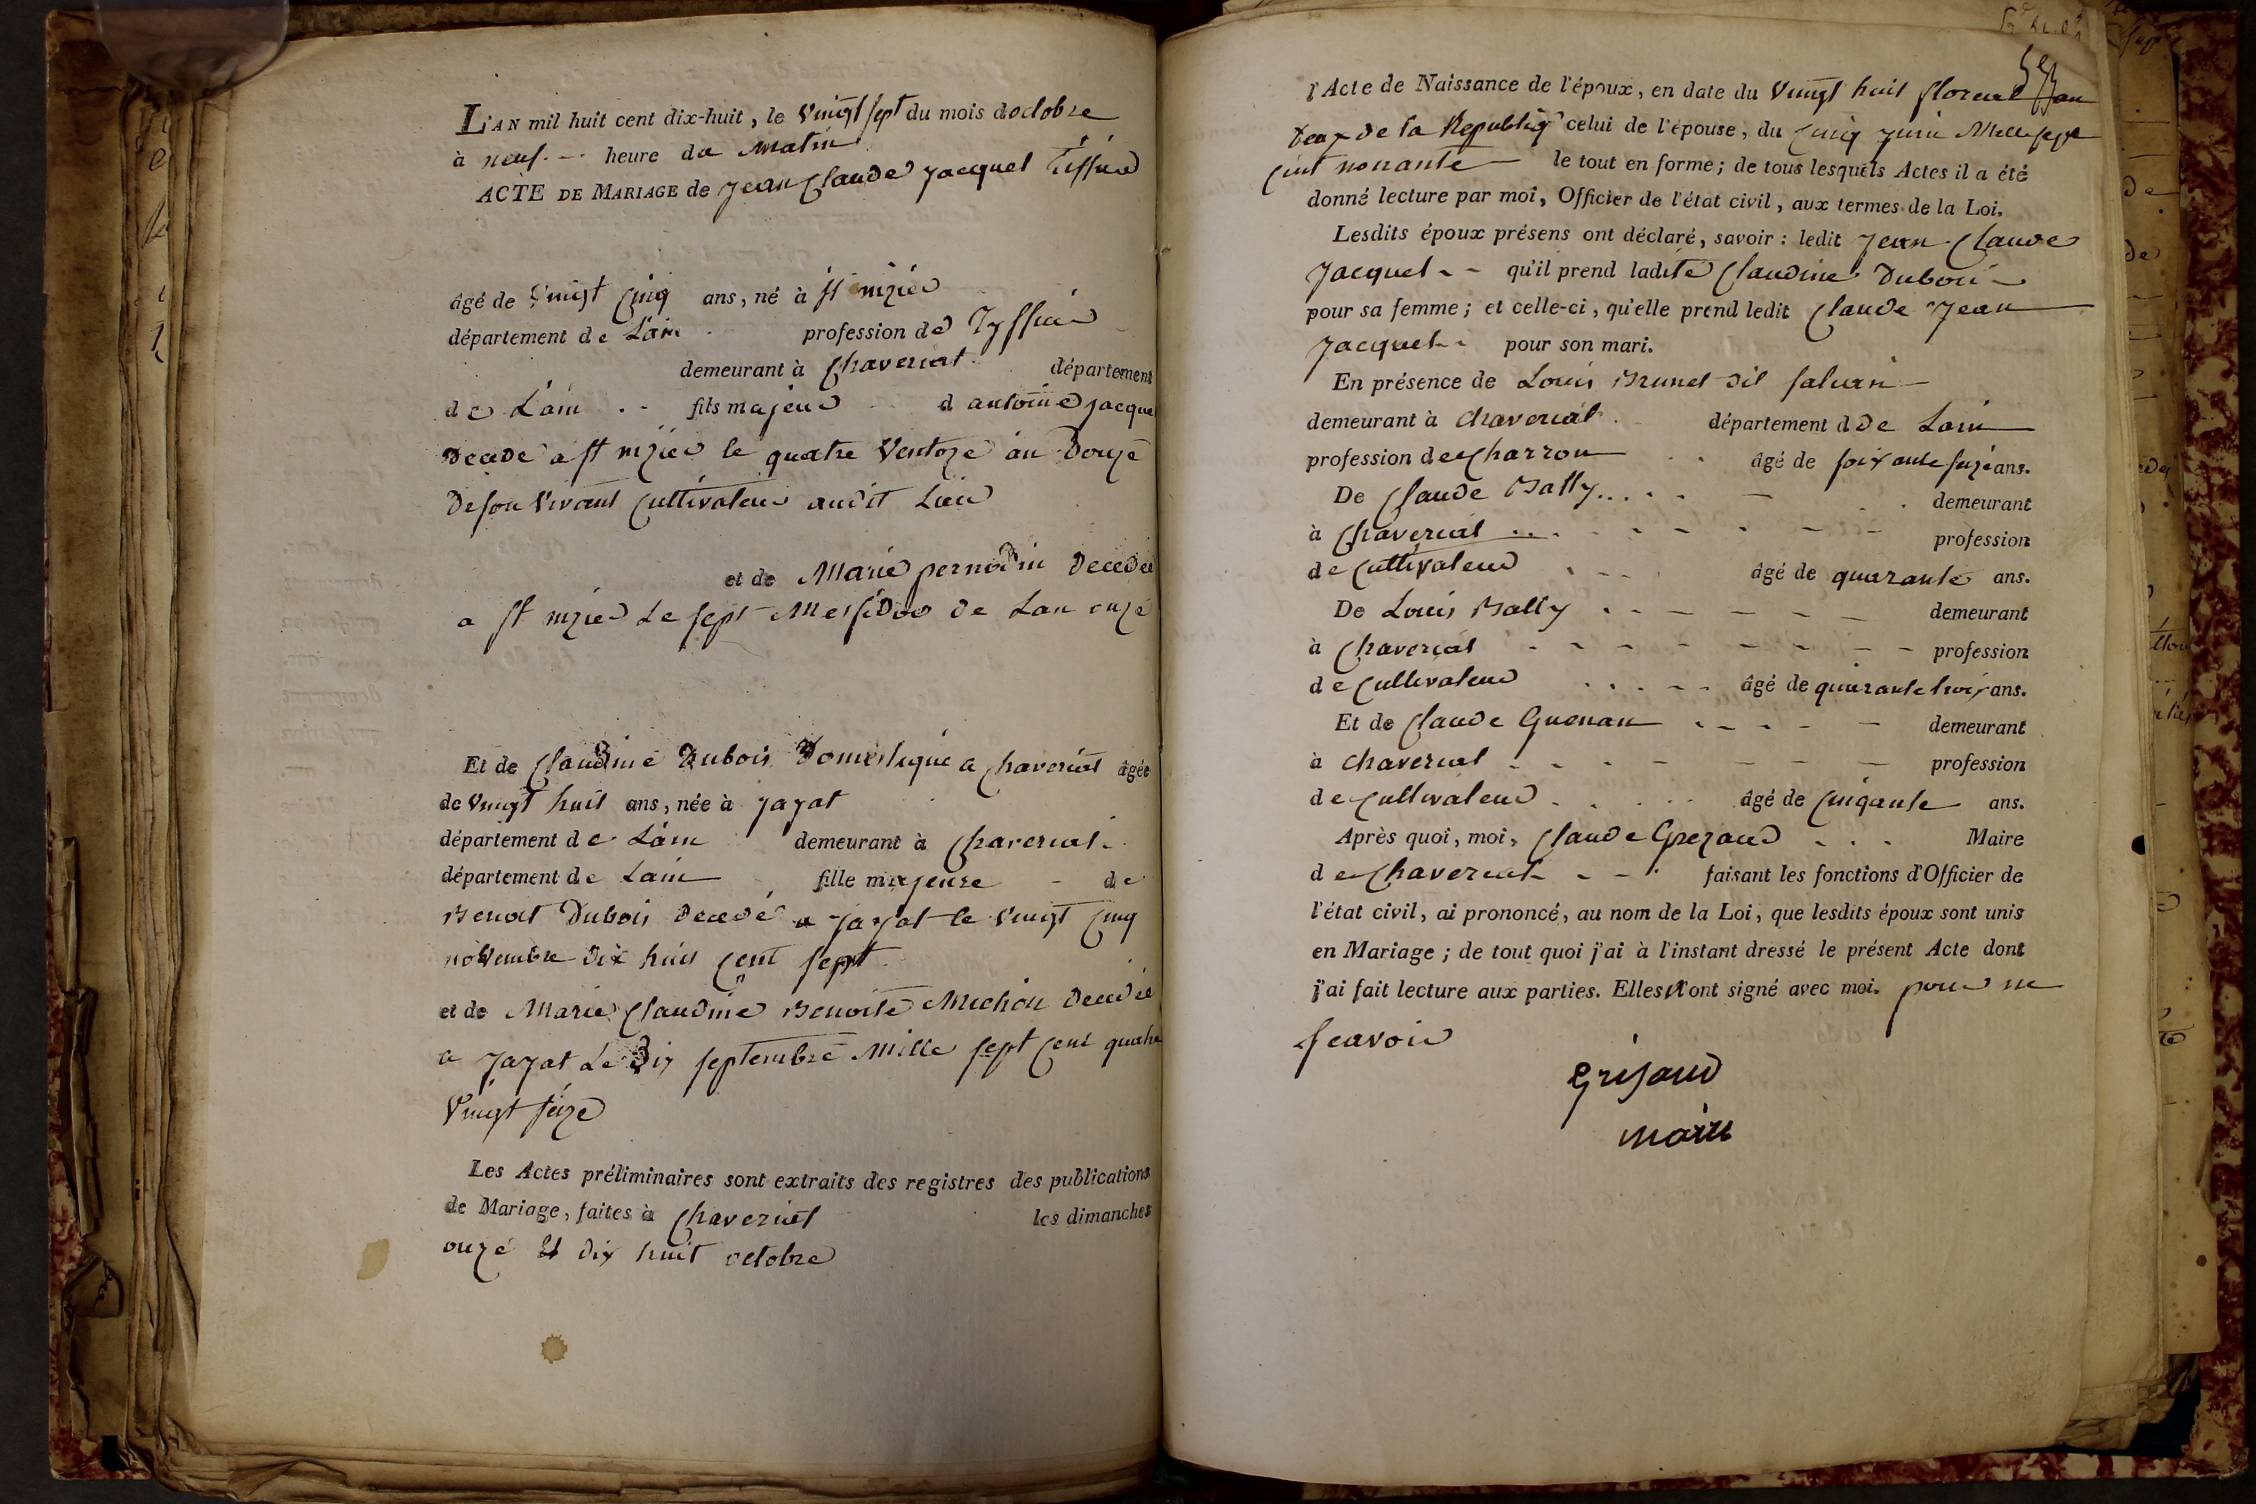 L'AN mil huit cent dix-huit, le vingt sept du mois doctobre
à neuf heure du matin
ACTE DE MARIAGE de jean Claude jacquet Tissieu
âgé de vingt cinq ans, né à st nizier
département de Lain profession de Tyssieu
demeurant à Chaveriat département
de Lain fils majeur d antoine jacque
Decedé a st nizier le quatre Ventoze an Douze
De son vivant Cultivateur audit Lieu
et de Marie pernodin Decedée
a st nizier Le sept Messidor de Lan onze
Et de Claudine Dubois Domestique a Chaveriat âgée
de vingt huit ans, née à jayat
département de Lain demeurant à Chaveriat
département de Lain fille majeure de
Benoit Dubois Decedé a jayat le vingt cinq
novembre Dix huit cent sept
et de Marie Claudine Benoite Michon Decedée
a jayat Le Dix septembre Mille sept cent quatre
vingt seize
Les Actes préliminaires sont extraits des registres des publications
de Mariage, faites à Chaveriat les dimanches
onze et dix huit octobre
l'Acte de Naissance de l'époux, en date du vingt huit floreal an
Deux de la Republiq celui de l'épouse, du cinq juin Mille sept
cent nonante le tout en forme; de tous lesquels Actes il a été
donné lecture par moi, Officier de l'état civil, aux termes de la Loi.
Lesdits époux présens ont déclaré, savoir : ledit jean Claude
jacquet qu'il prend ladite Claudine Duboi
pour sa femme ; et celle-ci, qu'elle prend ledit Claude jean
jacquet pour son mari.
En présence de Louis Brunet dit salvain
demeurant à Chaveriat département d De Lain
profession de Charron âgé de soixante seize ans.
De Claude Bally demeurant
à Chaveriat profession
de Cultivateur âgé de quarante ans.
De Louis Bally demeurant
à Chaveriat profession
de Cultivateur âgé de quarante trois ans.
Et de Claude Guenan demeurant
à Chaveriat profession
de Cultivateur âgé de cinqante ans.
Après quoi, moi, Claude Grezaud Maire
de Chaveriat faisant les fonctions d'Officier de
l'état civil, ai prononcé, au nom de la Loi, que lesdits époux sont unis
en Mariage ; de tout quoi j'ai à l'instant dressé le présent Acte dont
j'ai fait lecture aux parties. Elles n'ont signé avec moi. pour ne
scavoir
Grisaud
maire